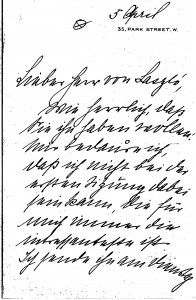 5 April
35, PARK STREET, W.
Lieber Herr von Laszlo,
Wie herrlich, dass
Sie ihn haben wollen.
Nur bedaure ich,
dass ich nicht bei der
ersten Sitzung dabei
sein kann, die für
mich immer die
interessanteste ist
Ich sende ihn am